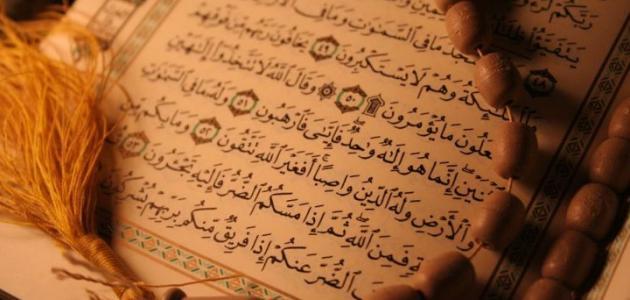 رَبَّكُمْ
يَتَفَيَّؤُا۟ ظِلَـٰلُهُ
٤٨ يَسْجُدُ مَا فِى ٱلسَّمَـٰوَٰتِ وَمَا فِى
ٱلْمَلَـٰٓئِكَةُ وَهُمْ لَا يَسْتَكْبِرُونَ ٤٩ يَخَافُونَ رَبَّهُم مِّن فَوْقِهِمْ
عَلُونَ مَا يُؤْمَرُونَ ۩ ٥٠ ۞ وَقَالَ ٱللَّهُ لَا تَتَّخِذُوٓا۟ إِلَـٰهَيْنِ
نَيْنِ إِنَّمَا هُوَ إِلَـٰهٌ وَٰحِدٌ فَإِيَّـٰىَ فَٱرْهَبُونِ ٥١ وَلَهُۥ مَا فِى ٱلسَّمَـٰوَٰتِ
وَٱلْأَرْضِ وَلَهُ ٱلدِّينُ وَاصِبًا أَفَغَيْرَ ٱللَّهِ تَتَّقُونَ ٥٢ وَمَا بِكُم مِّن
ةٍ فَمِنَ ٱللَّهِ ثُمَّ إِذَا مَسَّكُمُ ٱلضُّرُّ فَإِلَيْهِ تَجْـَٔرُونَ ٥٣
ٱلضُّرَّ عَنكُمْ إِذَا فَرِيقٌ مِّنكُم بِرَبِّهِمْ يُشْرِكُونَ